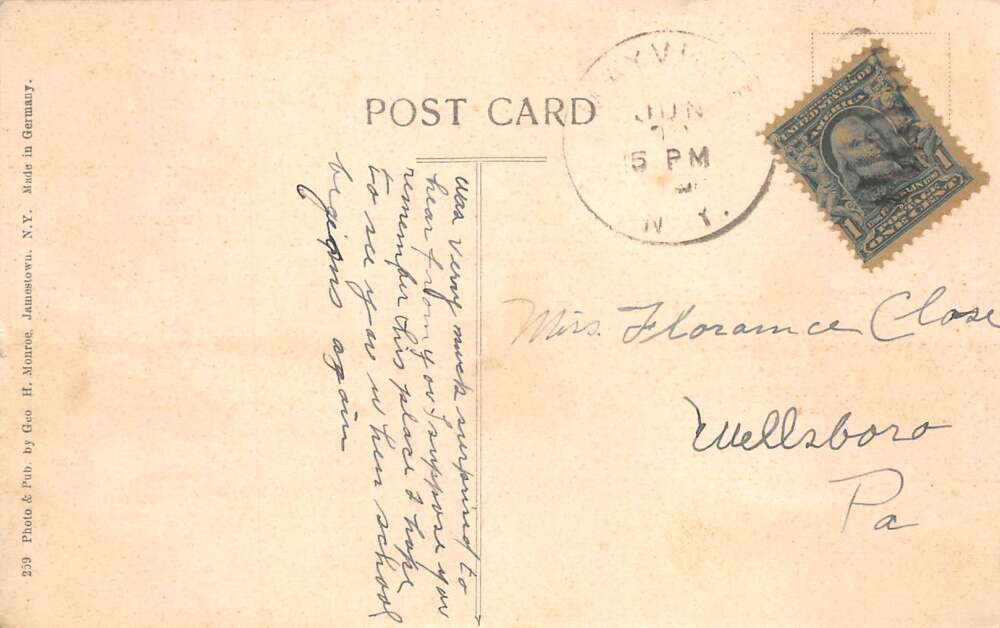 POST CARD
MAYVI
JUN
5 PM
N. Y.
UNITED STATES OF
AMERICA
1
1
POSTAGE
ONE CENT
Was verry much surprised to
hear from you I suppose you
remember this place I hope
to see you when school
begions again
Miss. Floramce Close
Wellsboro
Pa
259 Photo & Pub. by Geo H. Monroe, Jamestown, N.Y. Made in Germany.